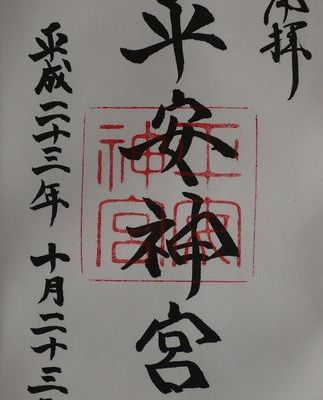 拝
平安神宮
平安神宮
平成二十三年十月二十三